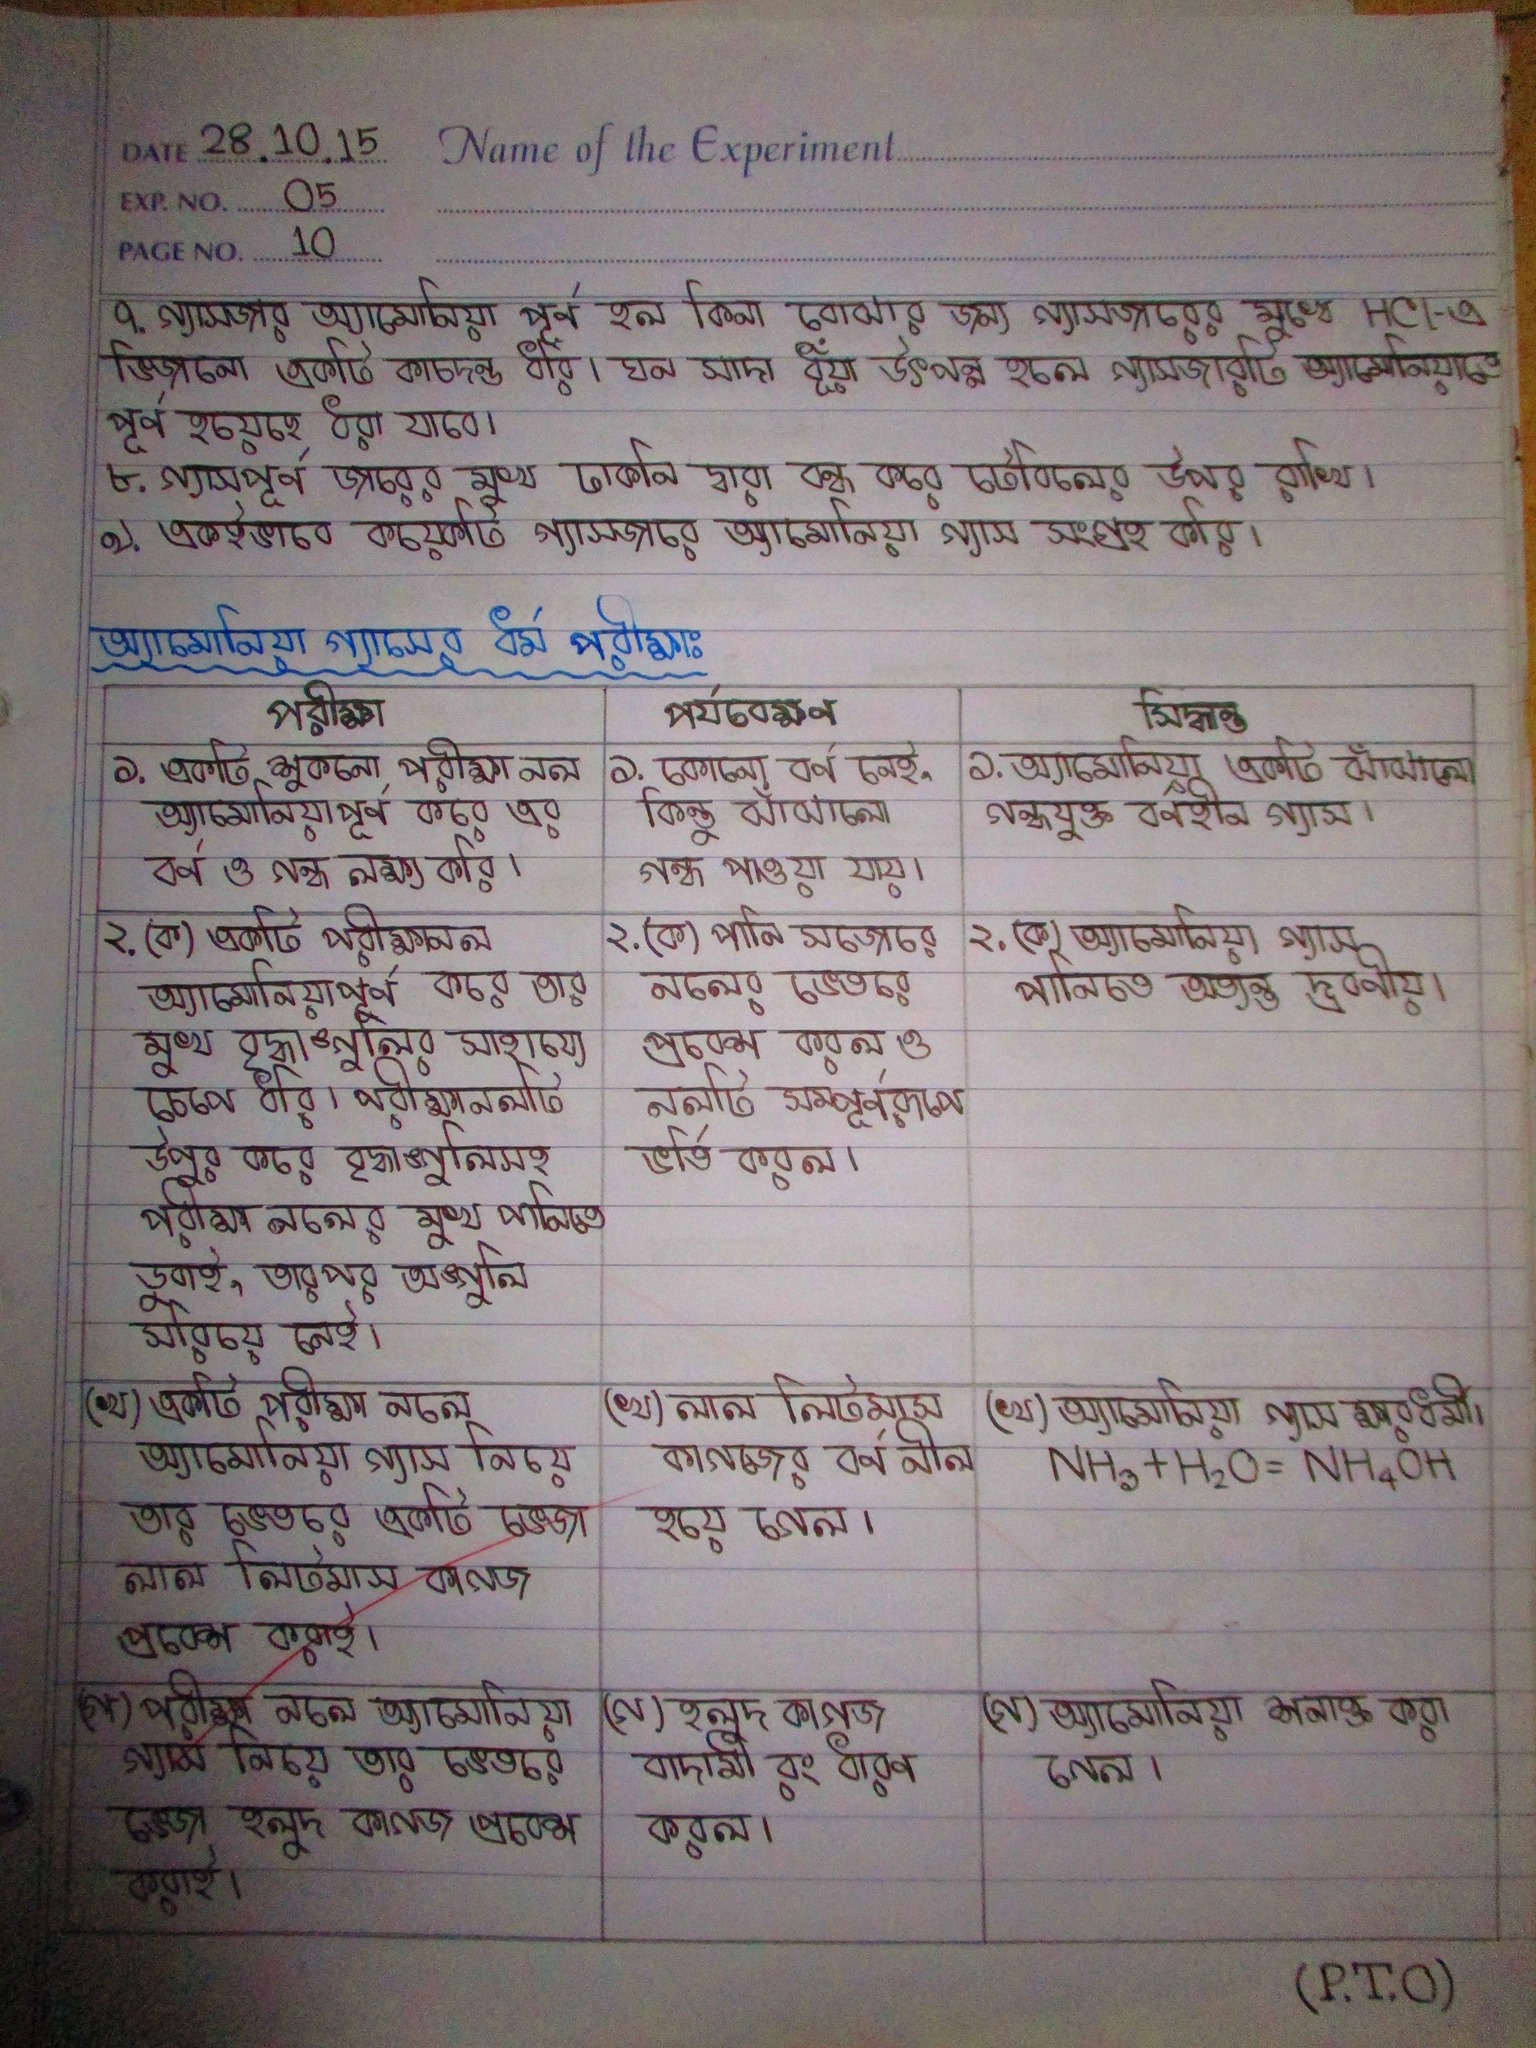 DATE 28.10.15 Name of the Experiment
EXP. NO. 05
PAGE NO. 10
৭. গ্যাসজার অ্যামোনিয়া পূর্ণ হল কিনা বোঝার জন্য গ্যাসজারের মুখে HCl-এ
ভিজানো একটি কাচদন্ড ধরি। ঘন সাদা ধূঁয়া উৎপন্ন হলে গ্যাসজারটি অ্যামোনিয়াতে
পূর্ণ হয়েছে ধরা যাবে।
৮. গ্যাসপূর্ণ জারের মুখ ঢাকনি দ্বারা বন্ধ করে টেবিলের উপর রাখি।
৯. একইভাবে কয়েকটি গ্যাসজারে অ্যামোনিয়া গ্যাস সংগ্রহ করি।
অ্যামোনিয়া গ্যাসের ধর্ম পরীক্ষাঃ
পরীক্ষা
পর্যবেক্ষণ
সিদ্ধান্ত
১. একটি শুকনো পরীক্ষা নল
অ্যামোনিয়াপূর্ণ করে এর
বর্ণ ও গন্ধ লক্ষ্য করি।
১. কোনো বর্ণ নেই,
কিন্তু ঝাঁঝালো
গন্ধ পাওয়া যায়।
১. অ্যামোনিয়া একটি ঝাঁঝালো
গন্ধযুক্ত বর্ণহীন গ্যাস।
২. (ক) একটি পরীক্ষানল
অ্যামোনিয়াপূর্ণ করে তার
মুখ বৃদ্ধাঙ্গুলির সাহায্যে
চেপে ধরি। পরীক্ষানলটি
উপুর করে বৃদ্ধাঙ্গুলিসহ
পরীক্ষা নলের মুখ পানিতে
ডুবাই, তারপর অঙ্গুলি
সরিয়ে নেই।
২. (ক) পানি সজোরে
নলের ভেতরে
প্রবেশ করল ও
নলটি সম্পূর্ণরূপে
ভর্তি করল।
২. (ক) অ্যামোনিয়া গ্যাস
পানিতে অত্যন্ত দ্রবণীয়।
(খ) একটি পরীক্ষা নলে
অ্যামোনিয়া গ্যাস নিয়ে
তার ভেতরে একটি ভেজা
লাল লিটমাস কাগজ
প্রবেশ করাই।
(খ) লাল লিটমাস
কাগজের বর্ণ নীল
হয়ে গেল।
(খ) অ্যামোনিয়া গ্যাস ক্ষারধর্মী।
NH₃ + H₂O = NH₄OH
(গ) পরীক্ষা নলে অ্যামোনিয়া
গ্যাস নিয়ে তার ভেতরে
ভেজা হলুদ কাগজ প্রবেশ
করাই।
(গ) হলুদ কাগজ
বাদামী রং ধারণ
করল।
(গ) অ্যামোনিয়া শনাক্ত করা
গেল।
(P.T.O)